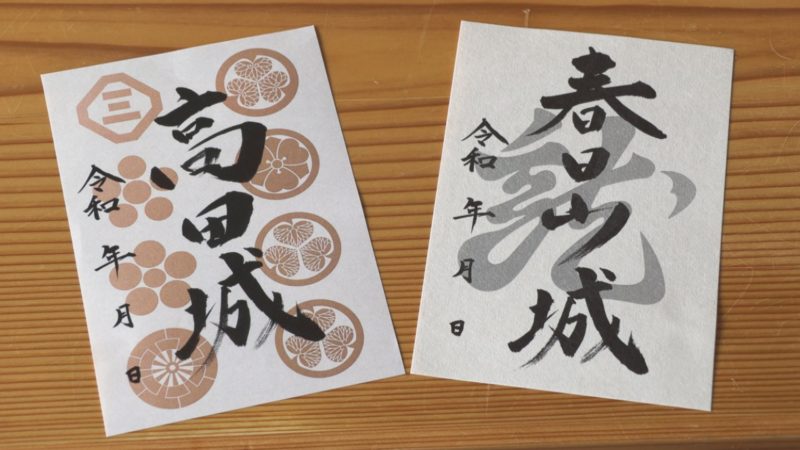 高田城
令和 年 月 日
三
春日山城
令和 年 月 日
龍